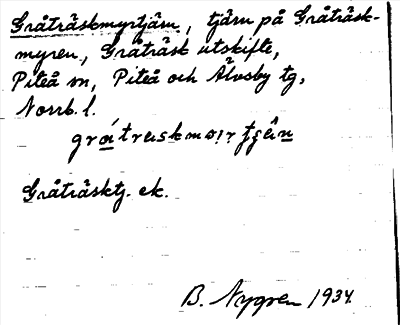 Gråträskmyrtjärn, tjärn på Gråträsk-
myren, Gråträsk utskifte,
Piteå sn, Piteå och Älvsby tg,
Norrb. l.
Gråträsktj. ek.
B. Nygren 1934